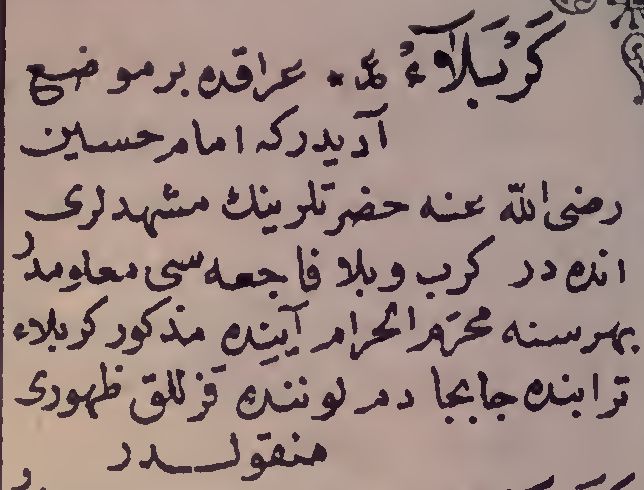 كَرْبَلَآءُ عراقده بر موضع
آديدركه امام حسين
رضى الله عنه حضرتلرينك مشهدلرى
انده در كرب وبلا فاجعه سى معلومدر
بهر سنه محرّم الحرام آيينده مذكور كربلاء
ترابنده جابجا دم لوننده قزللق ظهورى
منقولدر